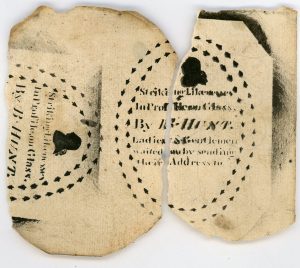 Striking Likenesses
In Profile on Glass,
By B. HUNT.
Striking Likenesses
In Profile on Glass,
By B. HUNT.
Ladies & Gentlemen
waited on by sending
their Address to